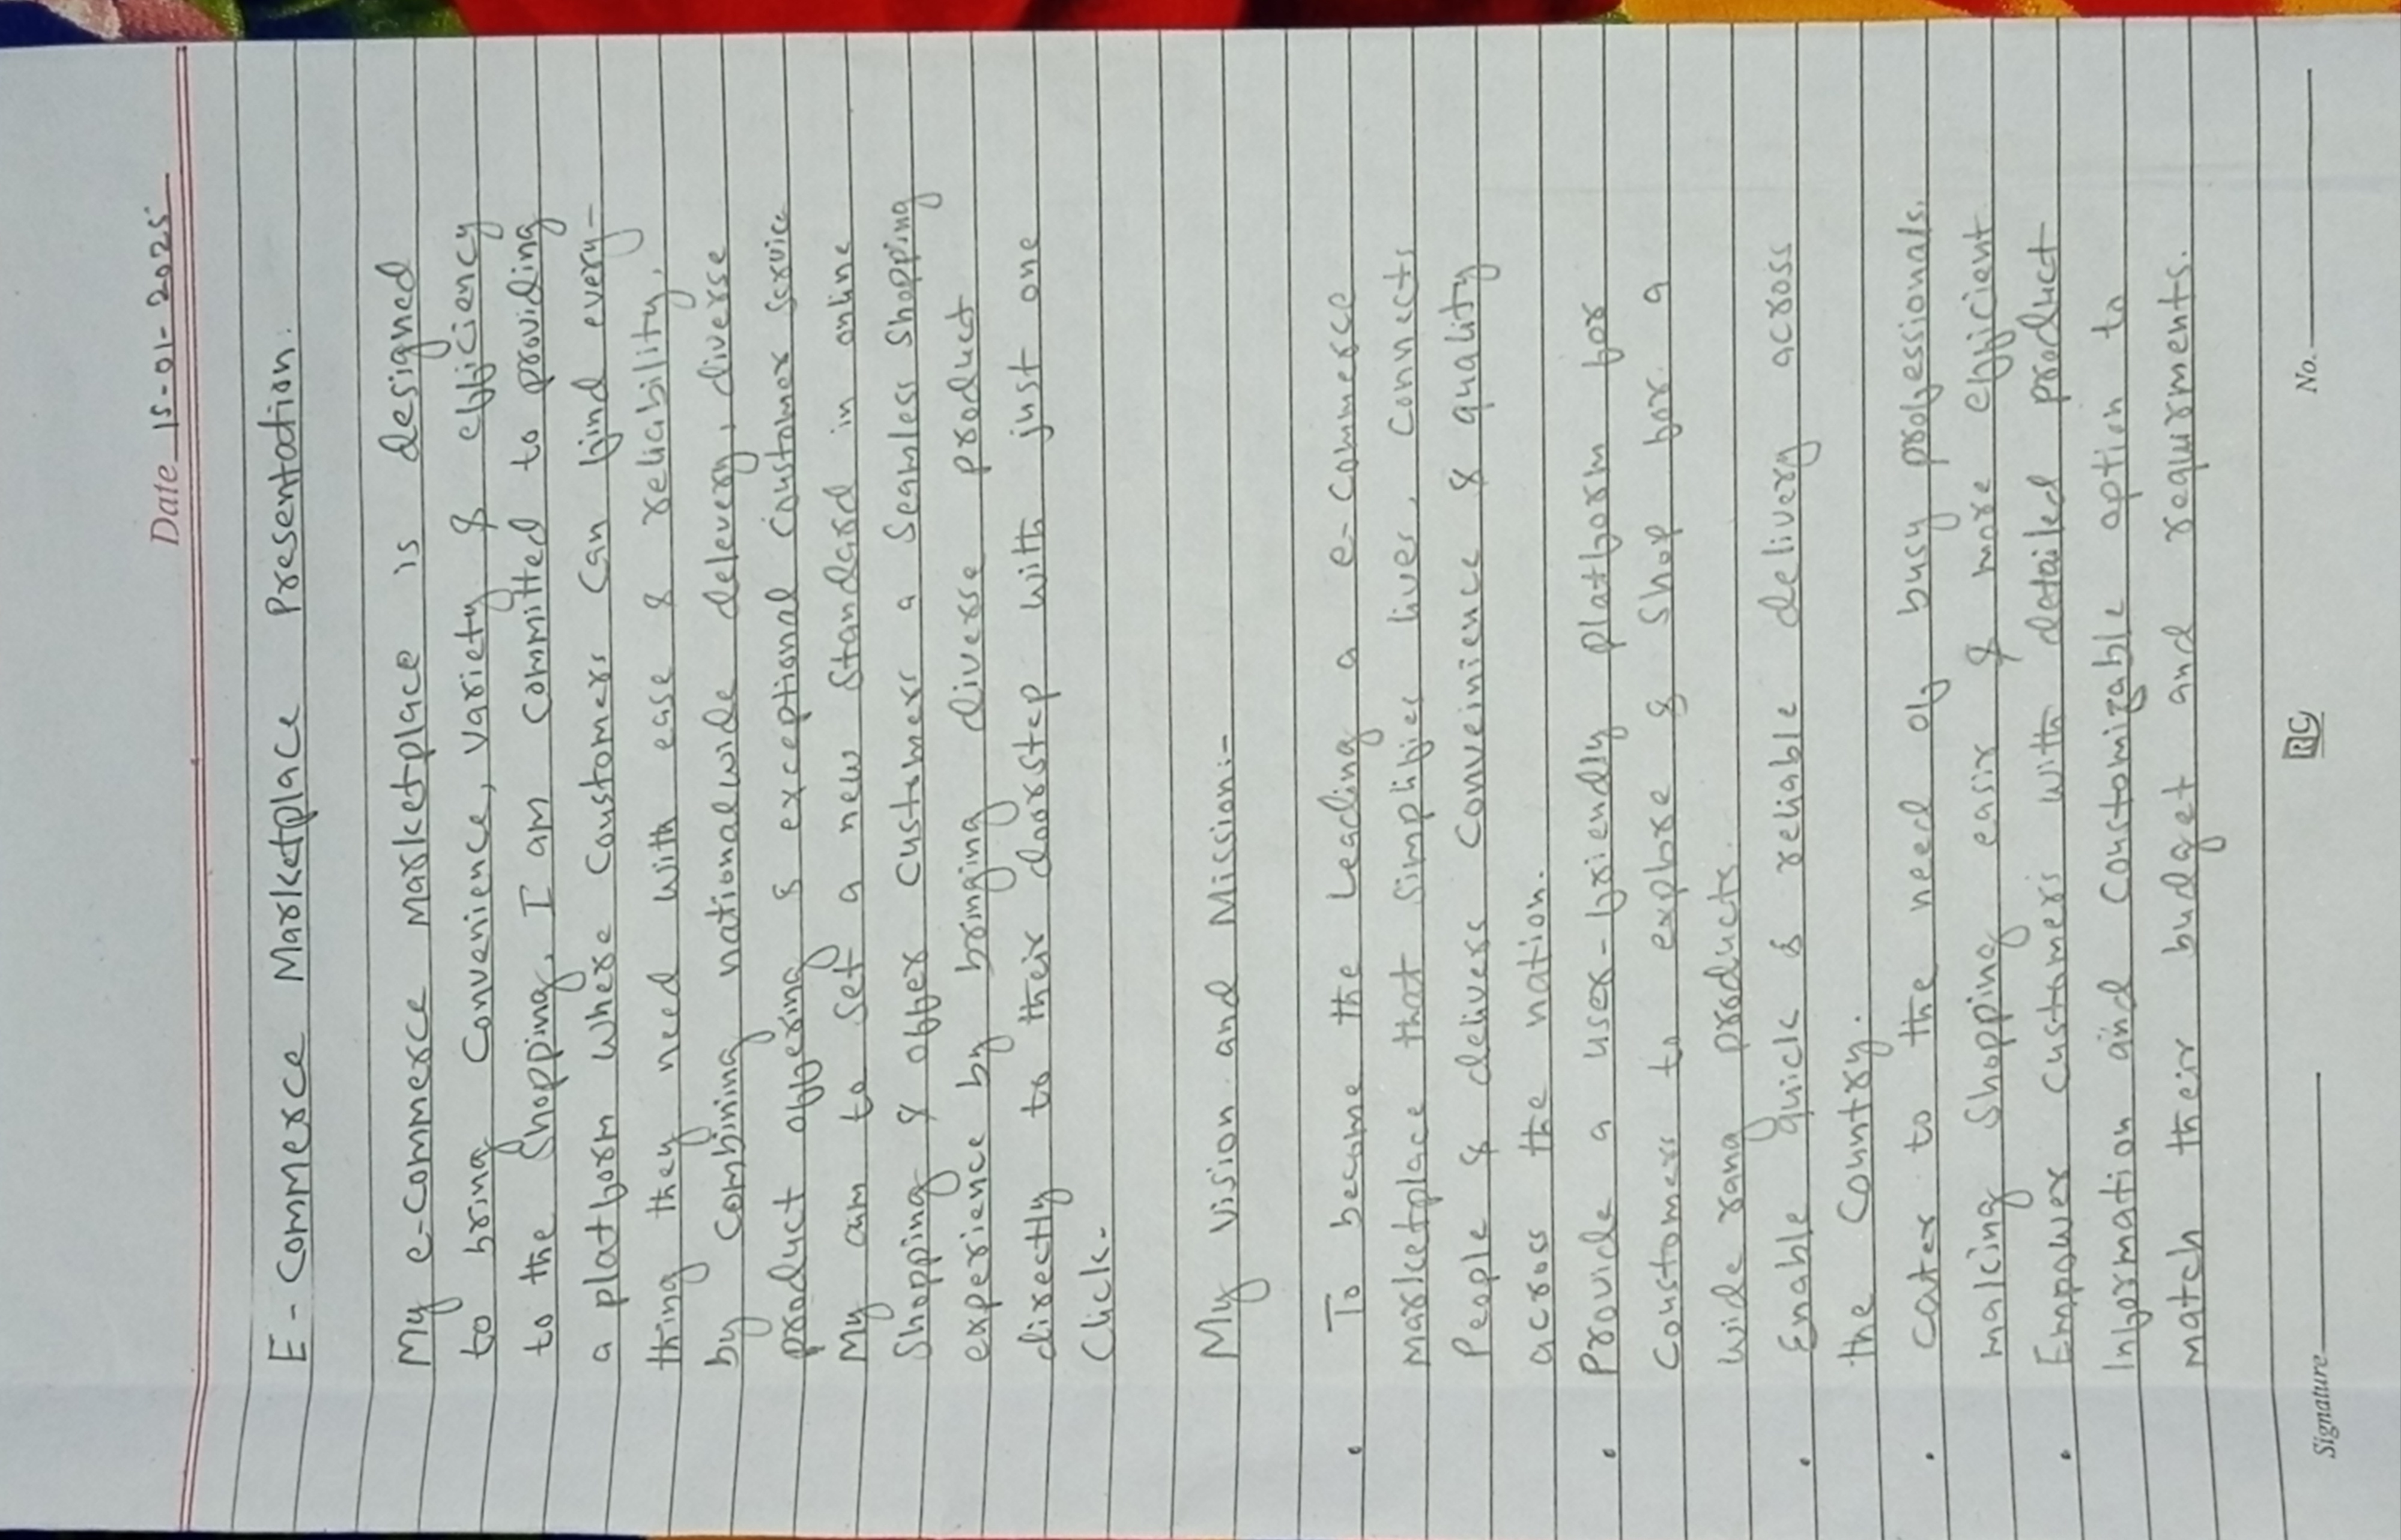 Date 15-01-2025
E-Commerce Marketplace Presentation.
My e-commerce marketplace is designed
to bring Convenience, Variety & efficiency
to the Shopping. I am committed to providing
a platform where Coustomers can find every-
thing they need with ease & reliability,
by combining nationalwide delevery, diverse
product offering & exceptional Coustomer Service
My aim to set a new Standard in online
Shopping & offer Customers a Seamless Shopping
experience by bringing diverse product
directly to their doorstep with just one
Click.
My Vision and Mission:-
• To become the Leading a e-Commerce
marketplace that Simplifies lives, Connects
People & delivers Conveinience & quality
across the nation.
• Provide a user-friendly platform for
Coustomers to explore & Shop for a
wide rang products.
• Enable quick & reliable delivery across
the Country.
• cater to the need of busy professionals.
making Shopping easir & more efficient
• Empower Customers with detailed product
Information and Coustomizable option to
match their budget and requirments.
Signature RC No.